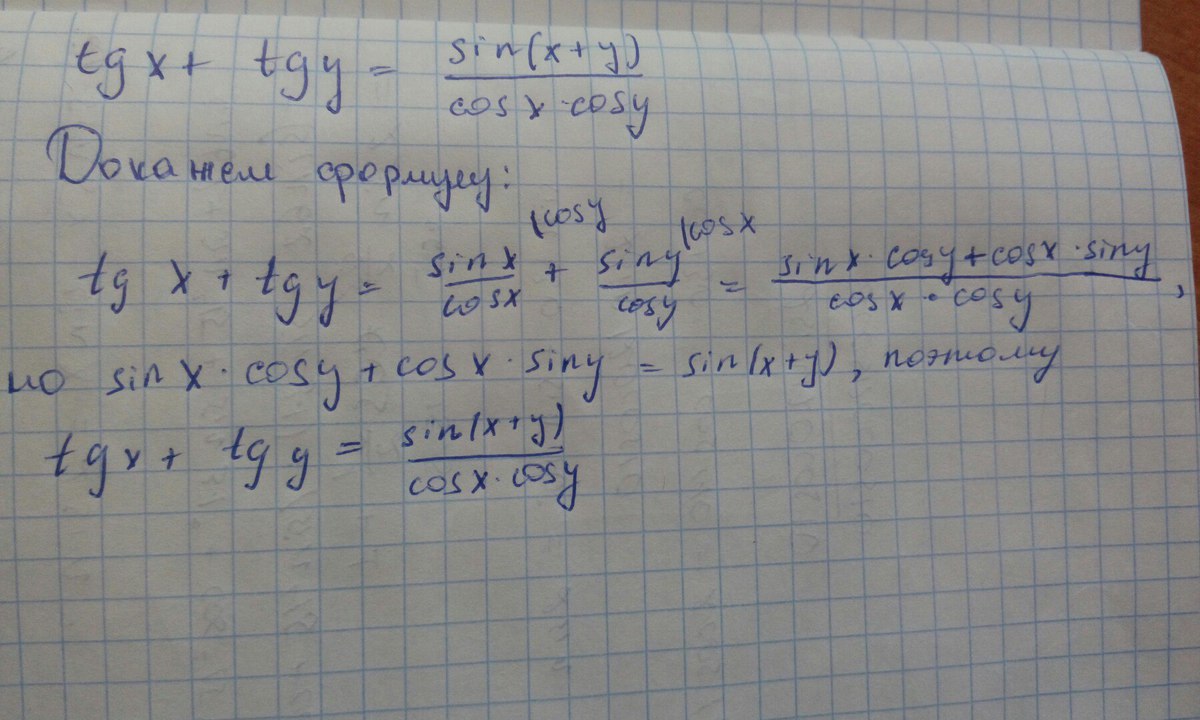 tg x + tg y = sin(x+y) / cos x · cos y
Докажем формулу:
tg x + tg y = sin x / cos x |cos y + sin y / cos y |cos x = sin x · cos y + cos x · sin y / cos x · cos y ,
но sin x · cos y + cos x · sin y = sin(x+y), поэтому
tg x + tg y = sin(x+y) / cos x · cos y